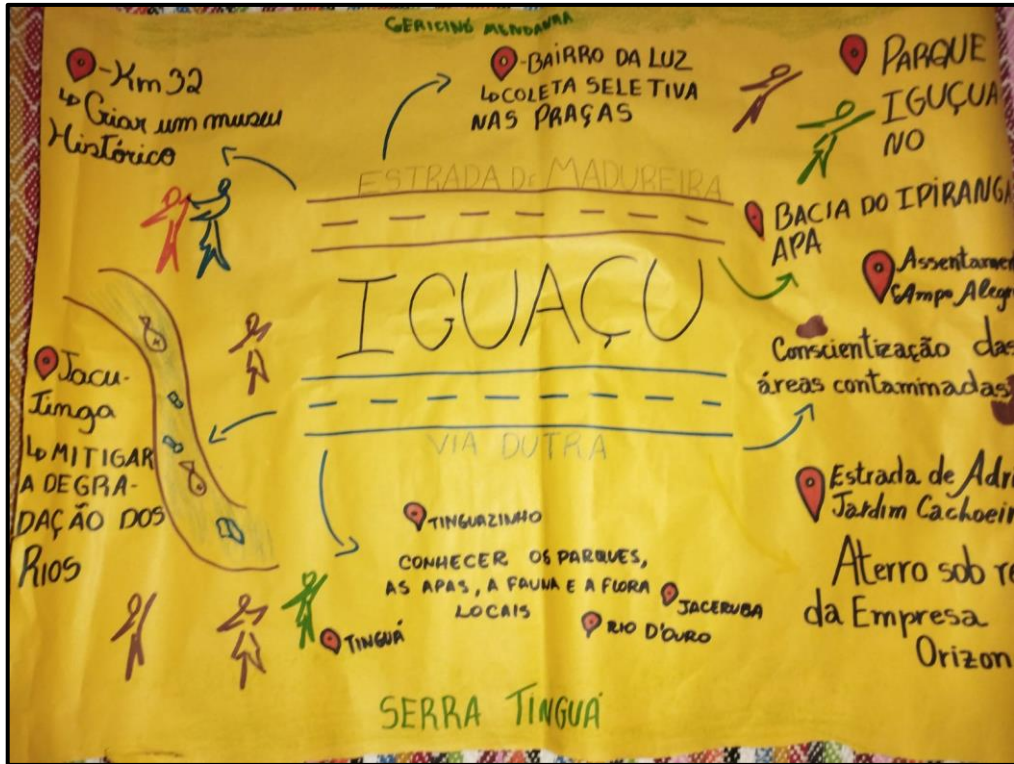 GERICINÓ MENDANHA
-Km 32
↳ Criar um museu
Histórico
-BAIRRO DA LUZ
↳ COLETA SELETIVA
NAS PRAÇAS
PARQUE
IGUÇUA
NO
ESTRADA DE MADUREIRA
BACIA DO IPIRANGA
APA
IGUAÇU
Assentame
CAmpo Alegr
Conscientização das
áreas contaminadas
Jacu-
tinga
↳ MITIGAR
A DEGRA-
DAÇÃO DOS
RIOS
VIA DUTRA
Estrada de Adri
Jardim Cachoeir
TINGUAZINHO
CONHECER OS PARQUES,
AS APAS, A FAUNA E A FLORA
LOCAIS
JACERUBA
RIO D'OURO
TINGUÁ
Aterro sob re
da Empresa
Orizon
SERRA TINGUÁ